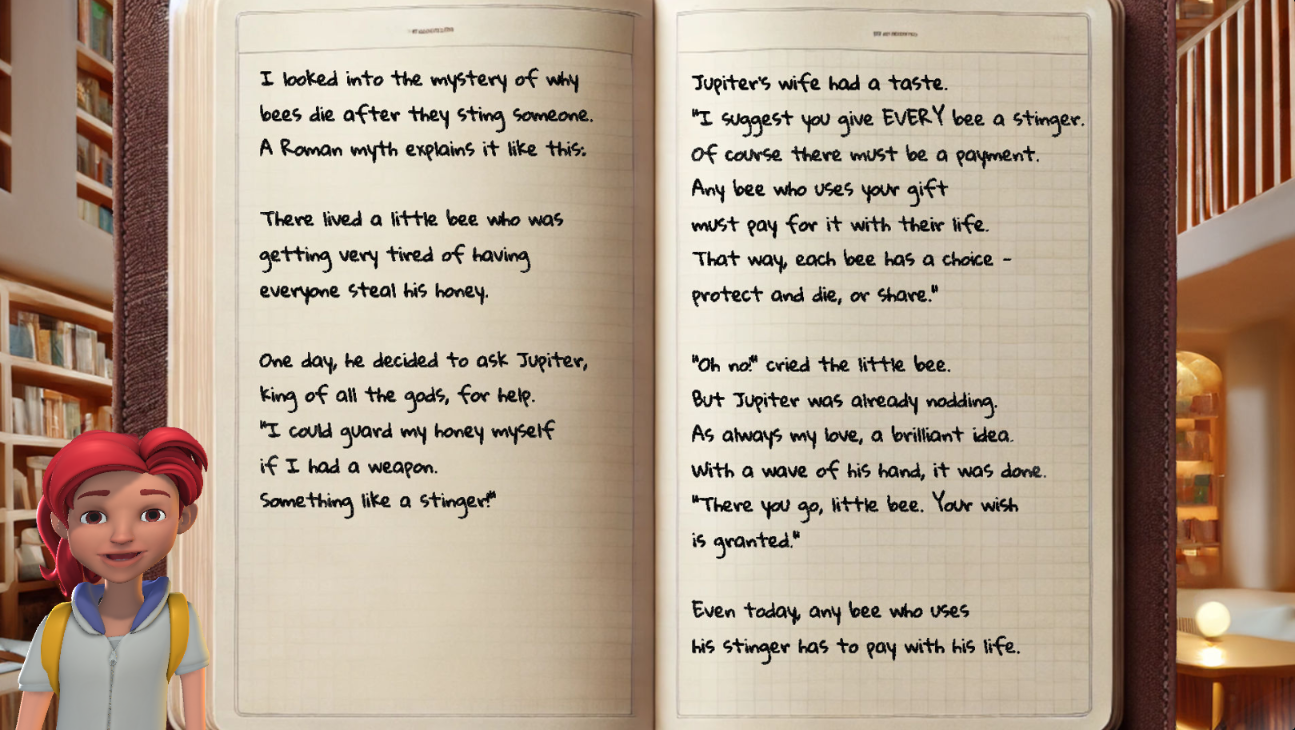 I looked into the mystery of why
bees die after they sting someone.
A Roman myth explains it like this:
There lived a little bee who was
getting very tired of having
everyone steal his honey.
One day, he decided to ask Jupiter,
king of all the gods, for help.
"I could guard my honey myself
if I had a weapon.
Something like a stinger!"
Jupiter's wife had a taste.
"I suggest you give EVERY bee a stinger.
Of course there must be a payment.
Any bee who uses your gift
must pay for it with their life.
That way, each bee has a choice -
protect and die, or share."
"Oh no!" cried the little bee.
But Jupiter was already nodding.
As always my love, a brilliant idea.
With a wave of his hand, it was done.
"There you go, little bee. Your wish
is granted."
Even today, any bee who uses
his stinger has to pay with his life.